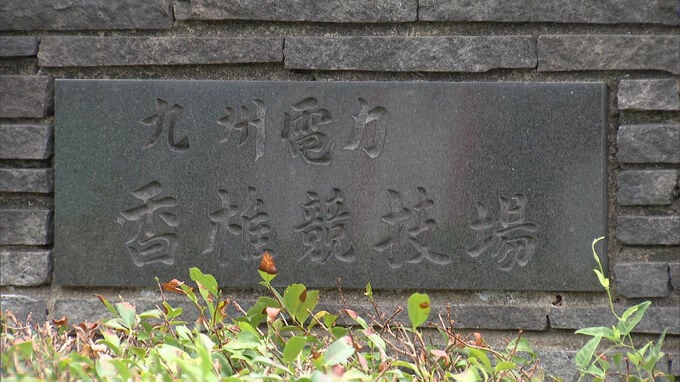 九州電力
香椎競技場